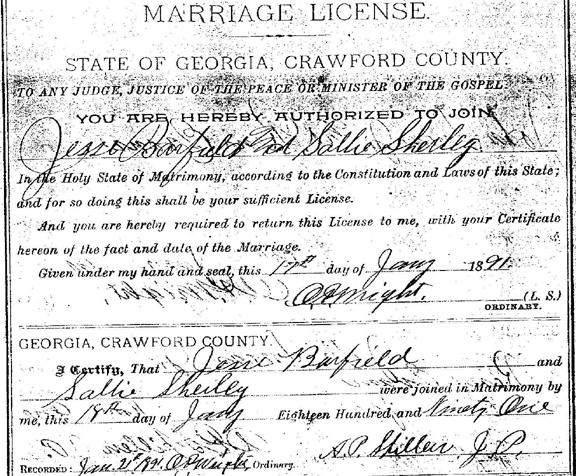 MARRIAGE LICENSE.
STATE OF GEORGIA, CRAWFORD COUNTY.
TO ANY JUDGE, JUSTICE OF THE PEACE OR MINISTER OF THE GOSPEL
YOU ARE HEREBY AUTHORIZED TO JOIN
Jesse Barfield and Sallie Sheiley
In the Holy State of Matrimony, according to the Constitution and Laws of this State;
and for so doing this shall be your sufficient License.
And you are hereby required to return this License to me, with your Certificate
hereon of the fact and date of the Marriage.
Given under my hand and seal, this 17th day of Jany 1891.
Wright. (L. S.)
ORDINARY.
GEORGIA, CRAWFORD COUNTY.
I Certify, That Jesse Barfield and
Sallie Sheiley were joined in Matrimony by
me, this 18th day of Jany Eighteen Hundred, and Ninety One
A.P. J.P.
RECORDED: Jan. Wright Ordinary.